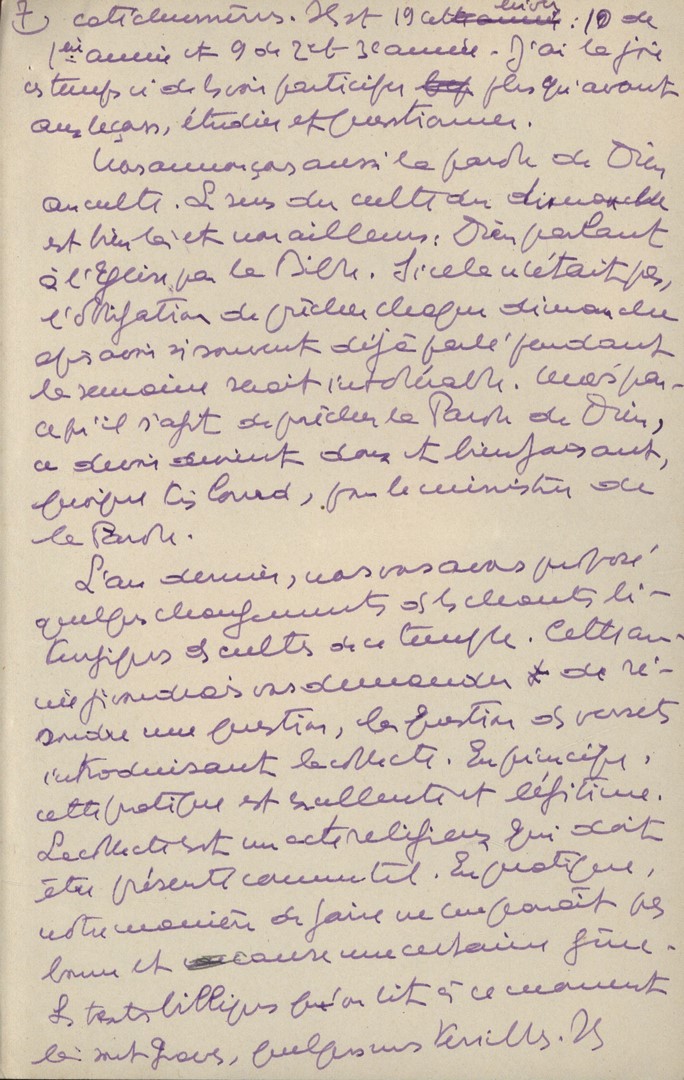 7) catéchumènes. Ils st 19 cet hiver : 10 de
1ère année et 9 de 2e et 3e année. J'ai la joie
ces temps ci de les voir participer plus qu'avant
aux leçons, étudier et questionner.
Nous annonçons aussi la parole de Dieu
au culte. Le sens du culte du dimanche
est bien là et non ailleurs : Dieu parlant
à l'Eglise par la Bible. Si cela n'était pas,
l'obligation de prêcher chaque dimanche
après avoir si souvent déjà parlé pendant
la semaine serait intolérable. Mais par-
ce qu'il s'agit de prêcher la Parole de Dieu,
ce devoir devient doux et bienfaisant,
quoique très lourd, pour le ministère de
la Parole.
L'an dernier, nous vous avons proposé
quelques changements ds les chants li-
turgiques des cultes de ce temple. Cette an-
née je voudrais vous demander de ré-
soudre une question, la question des versets
introduisant la collecte. En principe,
cette pratique est excellente et légitime.
La collecte est un acte religieux qui doit
être présenté comme tel. En pratique,
notre manière de faire ne me paraît pas
bonne et cause une certaine gêne.
Les textes bibliques qu'on lit à ce moment
là sont graves, quelques uns terribles. Ils